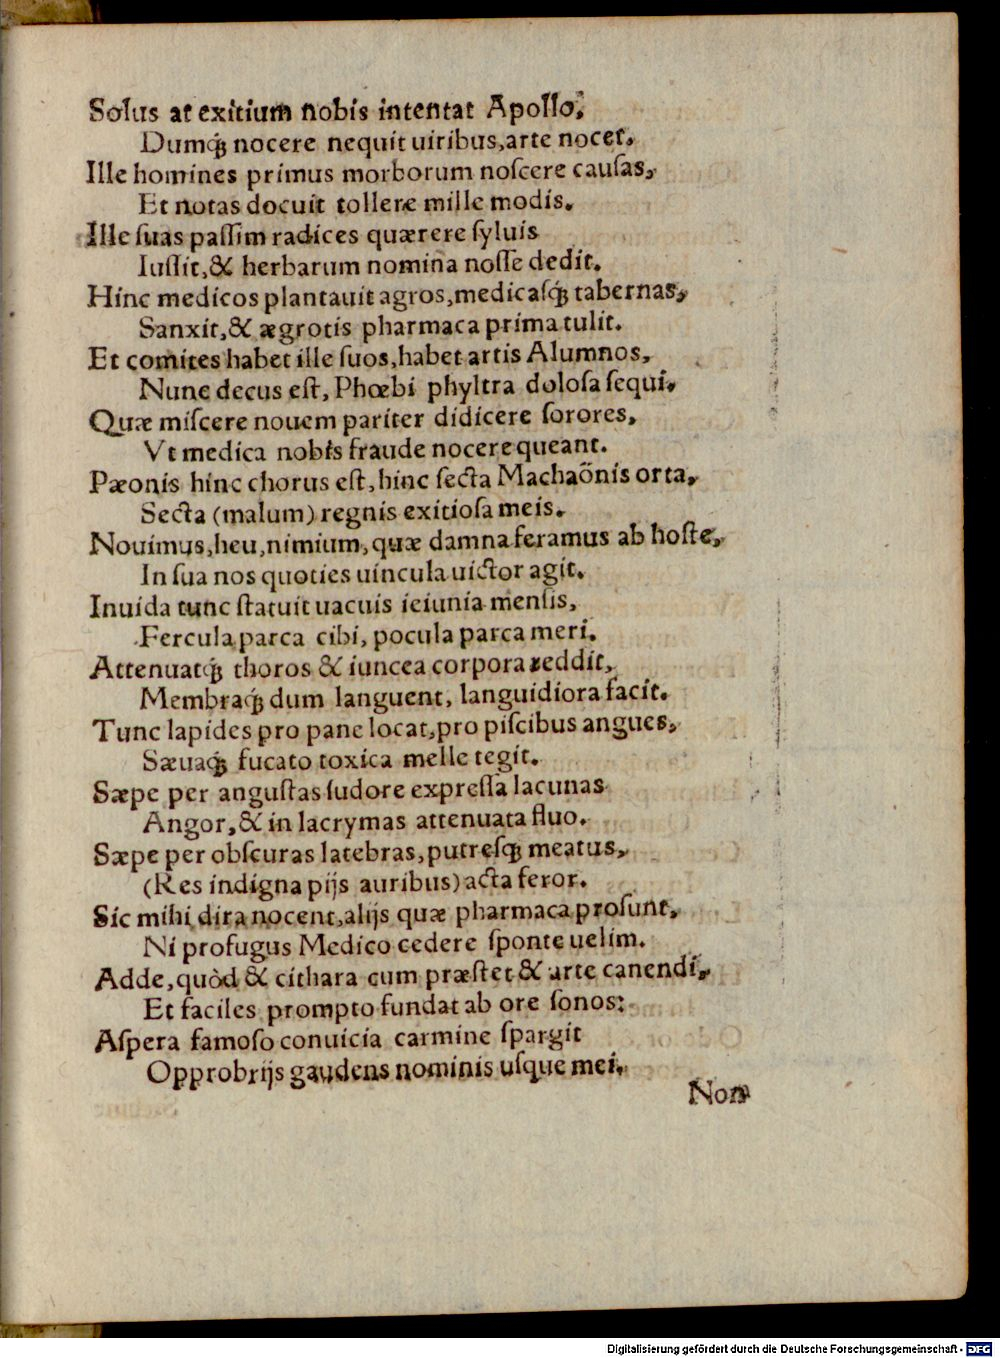 Solus at exitium nobis intentat Apollo,
Dumq́ꝫ nocere nequit uiribus,arte nocet.
Ille homines primus morborum noſcere cauſas,
Et notas docuit tollere mille modis.
Ille ſuas paſſim radices quærere ſyluis
Iuſſit,& herbarum nomina noſſe dedit.
Hinc medicos plantauit agros,medicaſq́ꝫ tabernas,
Sanxit,& ægrotis pharmaca prima tulit.
Et comites habet ille ſuos,habet artis Alumnos,
Nunc decus eſt, Phœbi phyltra doloſa ſequi.
Quæ miſcere nouem pariter didicere ſorores,
Vt medica nobis fraude nocere queant.
Pæonis hinc chorus eſt,hinc ſecta Machaõnis orta,
Secta (malum) regnis exitioſa meis.
Nouimus,heu,nimium,quæ damna feramus ab hoſte,
In ſua nos quoties uincula uictor agit.
Inuida tunc ſtatuit uacuis ieiunia menſis,
Fercula parca cibi, pocula parca meri.
Attenuatq́ꝫ thoros & iuncea corpora reddit,
Membraq́ꝫ dum languent, languidiora facit.
Tunc lapides pro pane locat,pro piſcibus angues,
Sæuaq́ꝫ fucato toxica melle tegit.
Sæpe per anguſtas ſudore expreſſa lacunas
Angor,& in lacrymas attenuata fluo.
Sæpe per obſcuras latebras,putreſq́ꝫ meatus,
(Res indigna pijs auribus) acta feror.
Sic mihi dira nocent,alijs quæ pharmaca proſunt,
Ni profugus Medico cedere ſponte uelim.
Adde,quòd & cithara cum præſtet & arte canendi,
Et faciles prompto fundat ab ore ſonos:
Aſpera famoſo conuicia carmine ſpargit
Opprobrijs gaudens nominis uſque mei.
Non
Digitalisierung gefördert durch die Deutsche Forschungsgemeinschaft - DFG